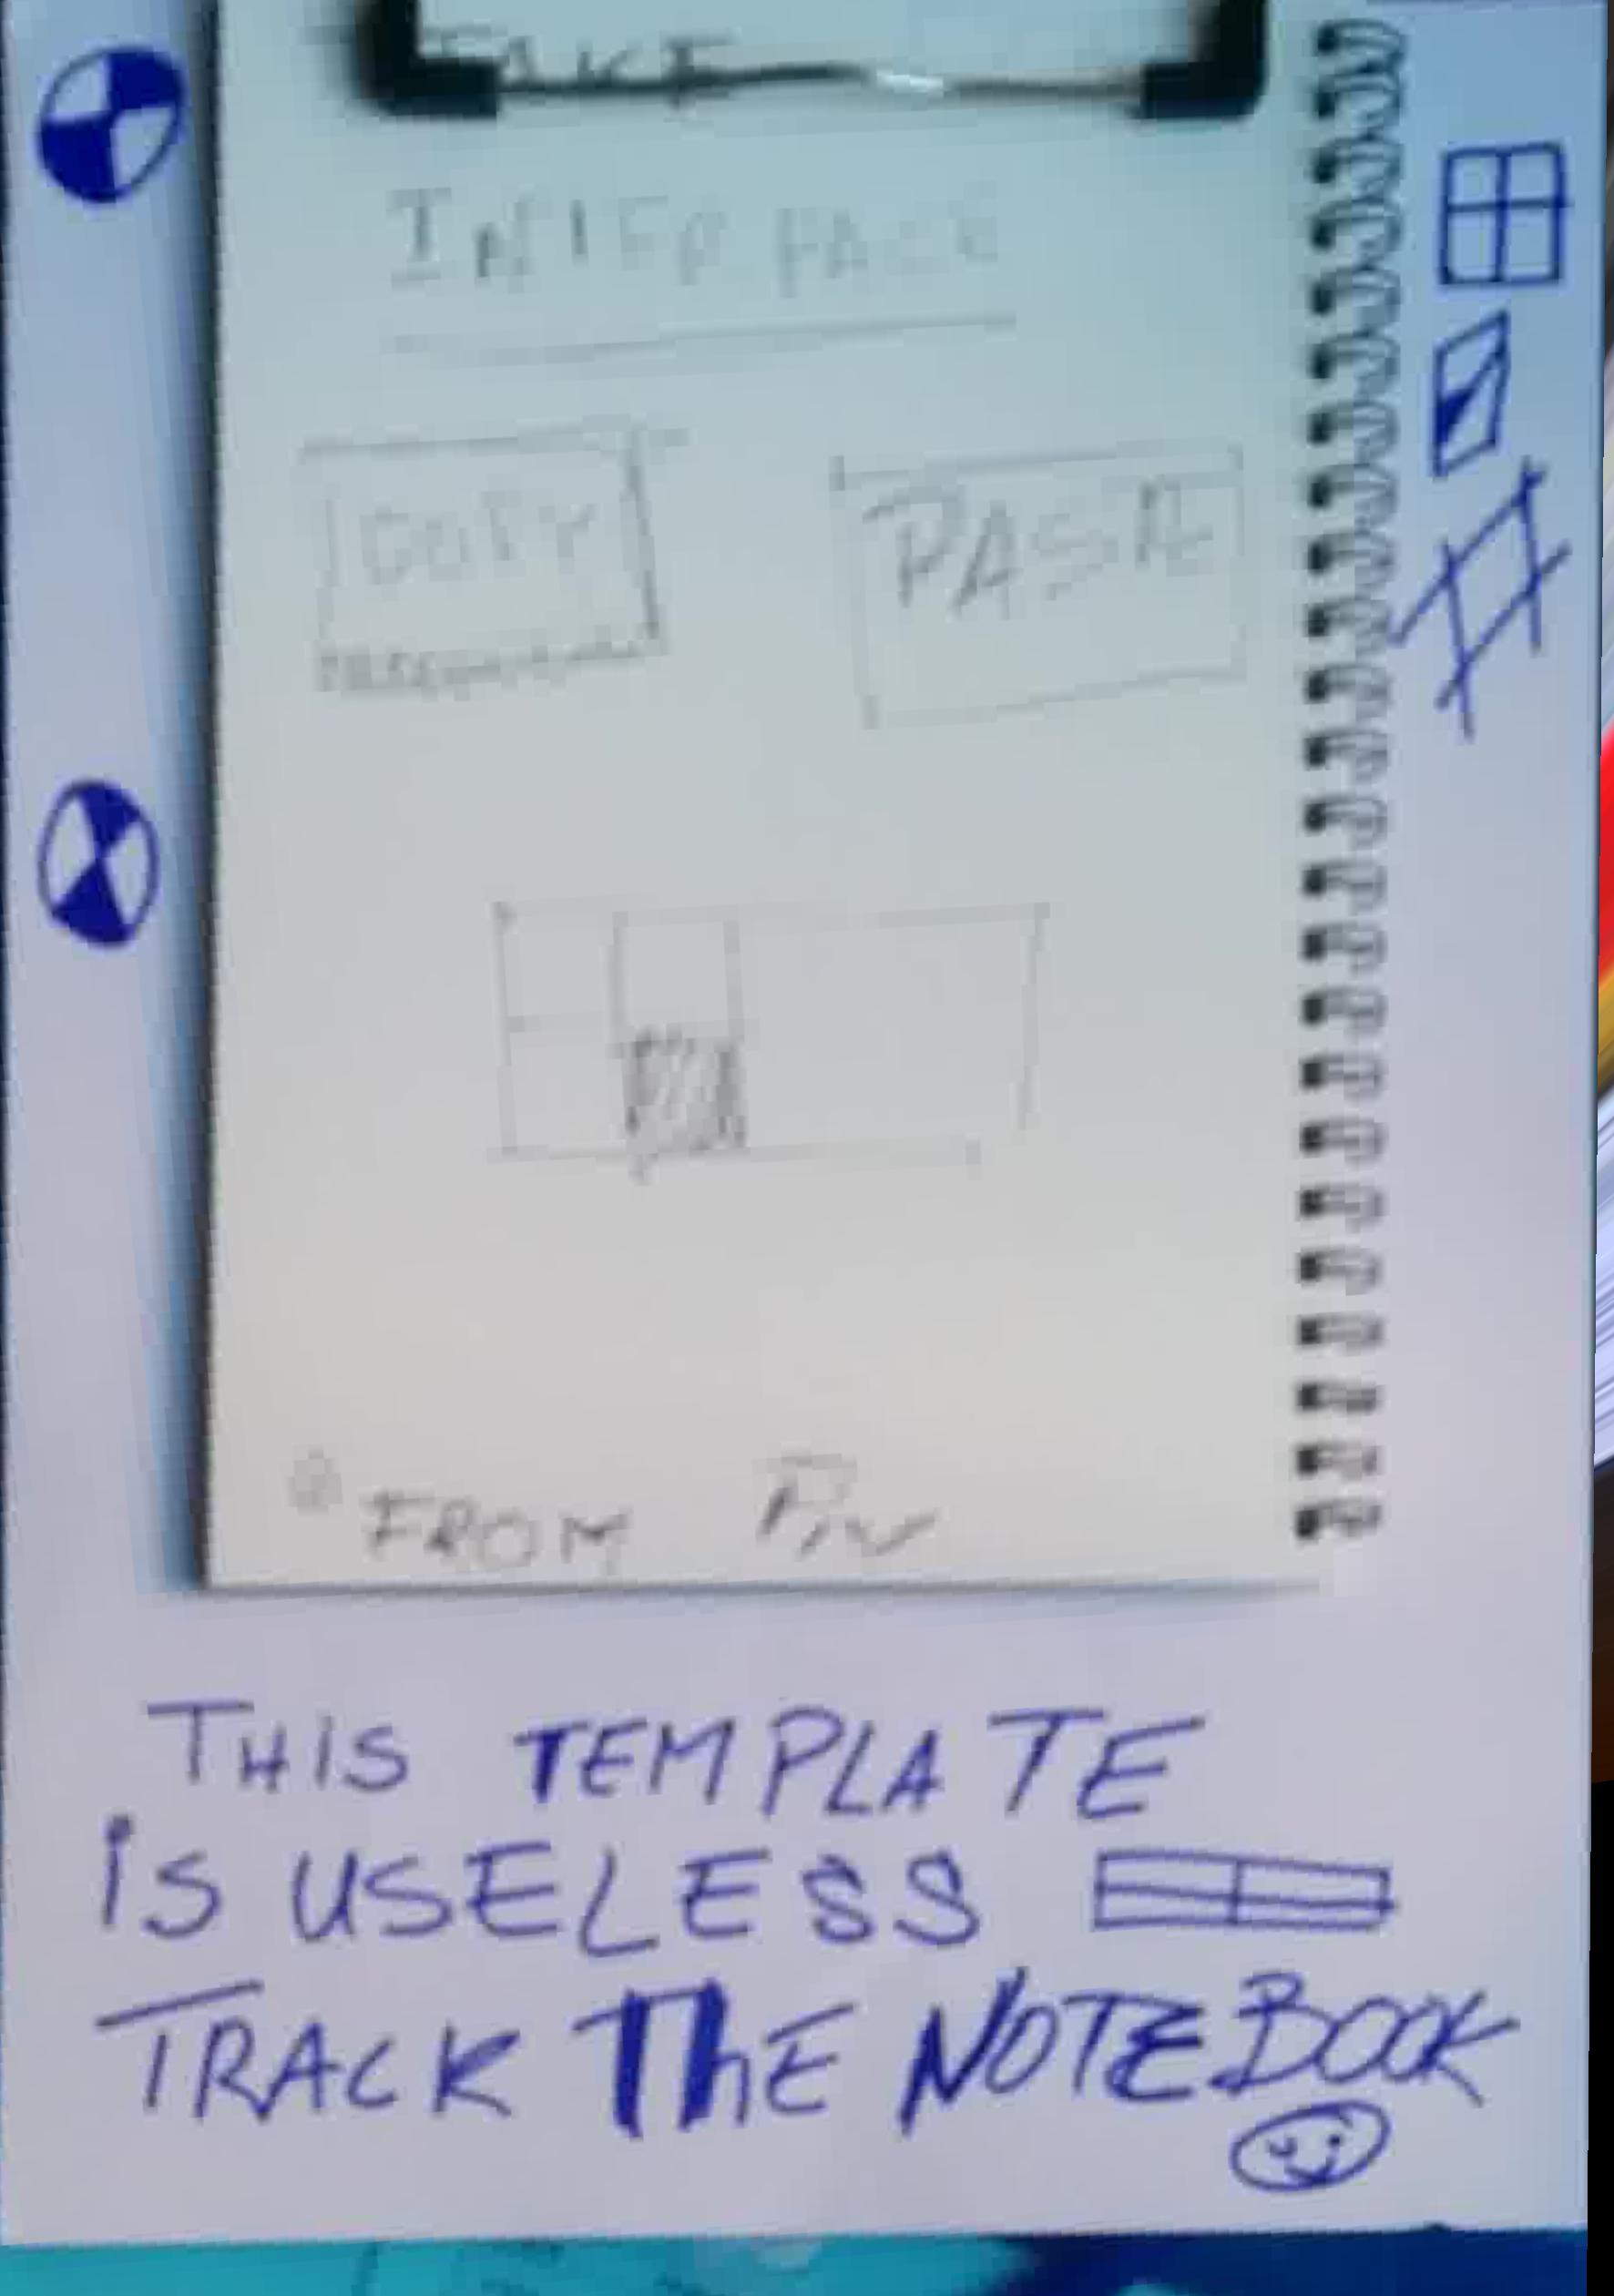 TAKE
INTERFACE
COPY
PASTE
FROM
THIS TEMPLATE
iS USELESS
TRACK THE NOTEBOOK